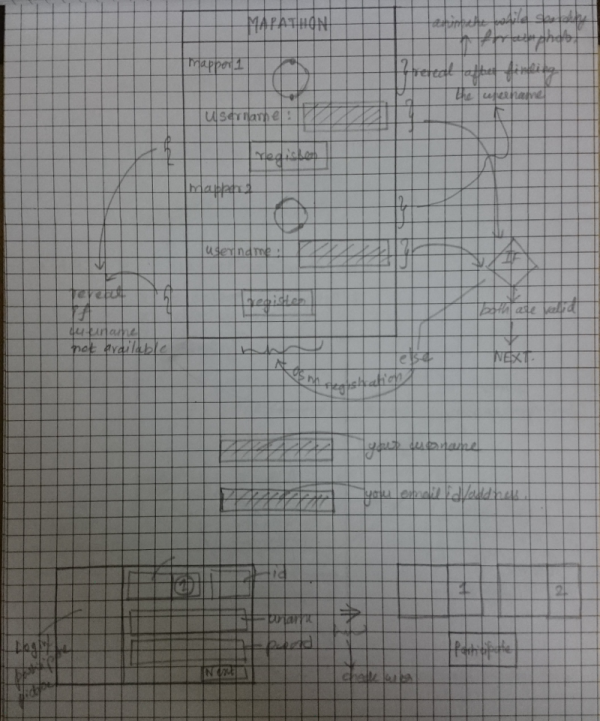 MAPATHON
animate while searching
for a photo.
mapper1
} reveal after finding
the username
username:
register
mapper2
username:
IF
register
reveal
if
username
not available
both are valid
else
NEXT.
OSM registration
your username
your email id/address.
1
id
1
2
uname
Login
participate
picture
pword
Participate
Next
check user